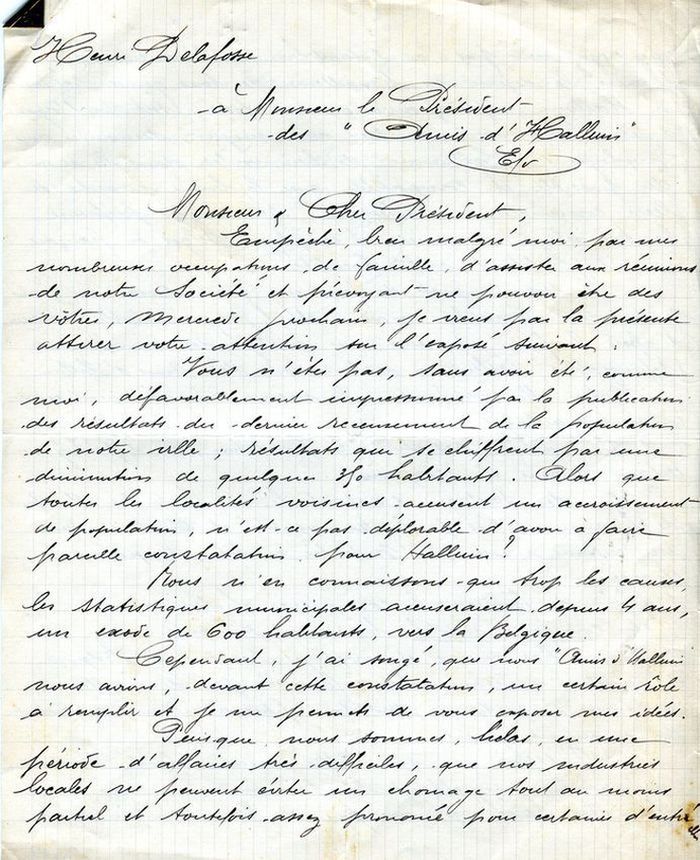 Henri Delafosse
à Monsieur le Président
des "Amis d'Halluin"
E/v
Monsieur & Cher Président,
Empêché, bien malgré moi, par mes
nombreuses occupations de famille, d'assister aux réunions
de notre Société et prévoyant ne pouvoir être des
vôtres, Mercredi prochain, je viens par la présente
attirer votre attention sur l'exposé suivant :
Vous n'êtes pas, sans avoir été, comme
moi, défavorablement impressionné par la publication
des résultats du dernier recensement de la population
de notre ville ; résultats qui se chiffrent par une
diminution de quelques habitants. Alors que
toutes les localités voisines accusent un accroissement
de population, n'est-ce pas déplorable d'avoir à faire
pareille constatation pour Halluin?
Nous n'en connaissons que trop les causes,
les statistiques municipales accuseraient depuis 4 ans,
un exode de 600 habitants, vers la Belgique.
Cependant, j'ai songé, que nous "Amis d'Halluin"
nous avions, devant cette constatation, un certain rôle
à remplir et je me permets de vous exposer mes idées.
Puisque, nous sommes, hélas, en une
période d'affaires très difficiles, que nos industries
locales ne peuvent éviter un chomage tout au moins
partiel et toutefois assez prononcé pour certaines d'entre
elles